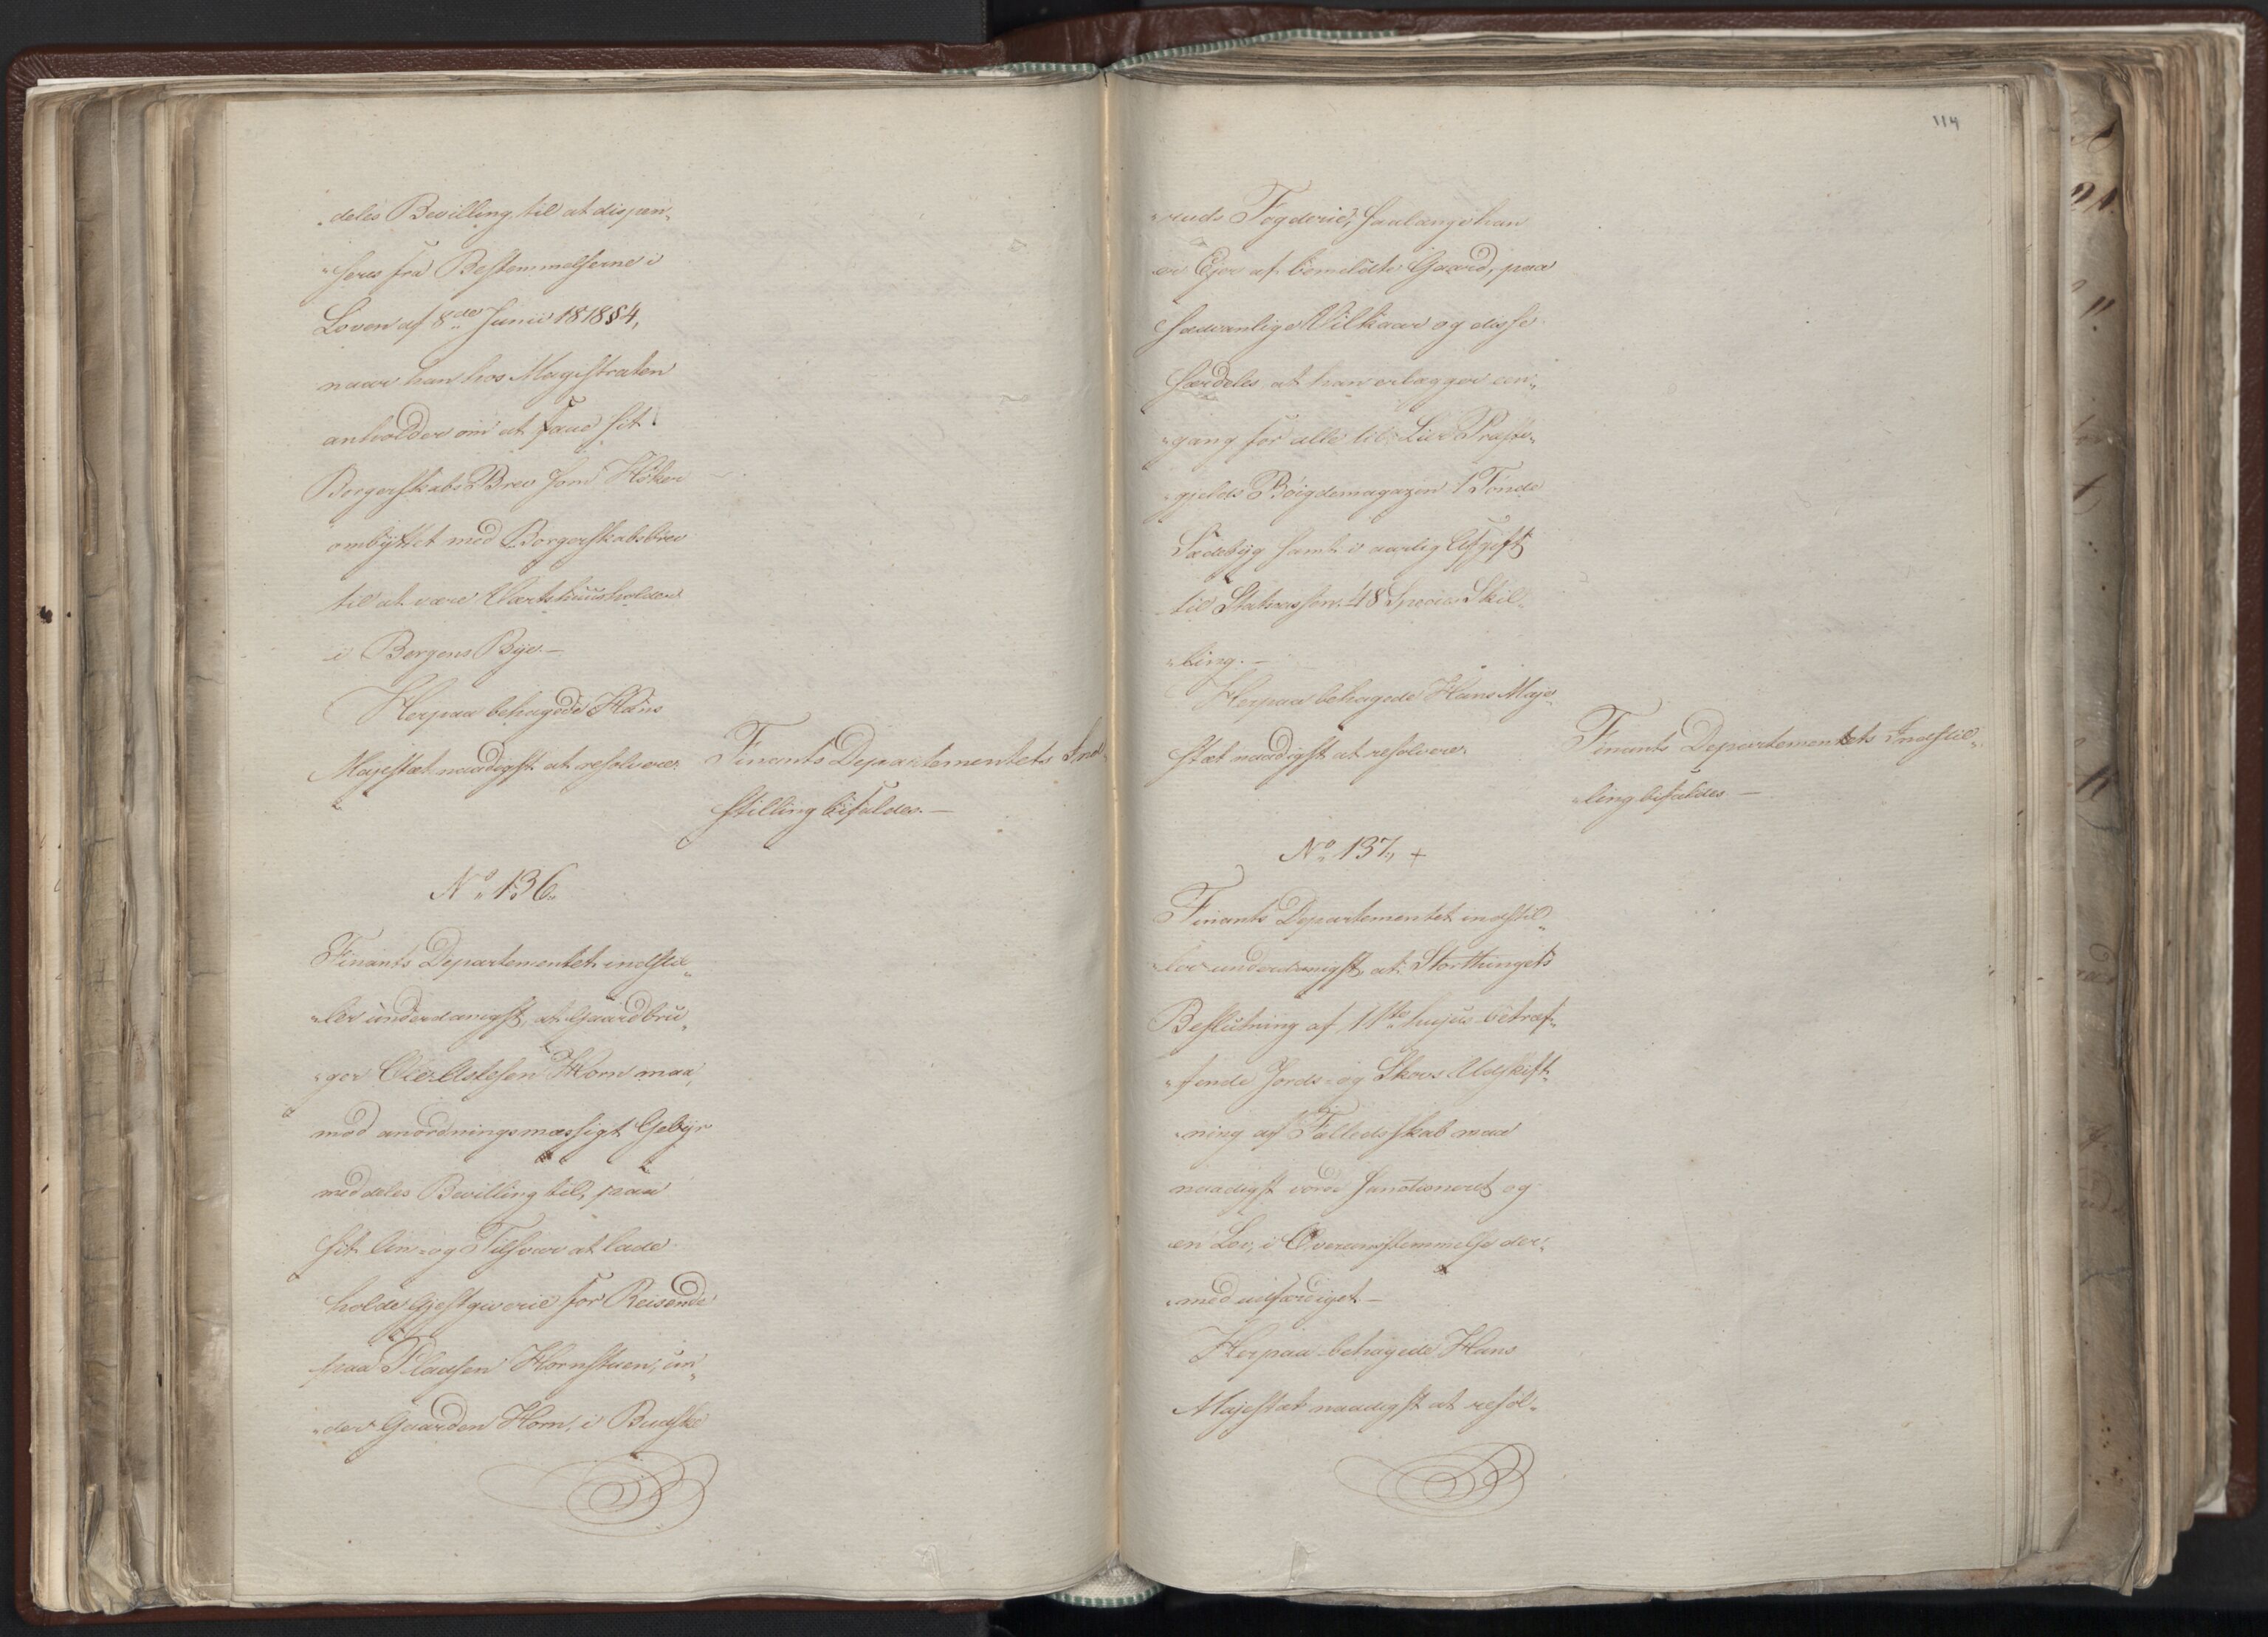 „deles Bevilling til at dispen„
„seres fra Bestemmelserne i
Loven af 8de Junii 1818 § 4,
naar han hos Magistraten
anholder om at faae sit
Borgerskabs Brev som Höker
ombyttet med Borgerskabsbrev
til at være Værtshuusholder
i Bergens Bye.—
Herpaa behagede Hans
Majestæt naadigst at resolvere:
Finants Departementets Ind„
stilling bifaldes.—
No 136.
Finants Departementet indstil„
„ler underdanigst, at Gaardbru„
„ger Ole Astesen Horn maa,
mod anordningsmæssigt Gebyr
meddeles Bevilling til, paa
sit An- og Tilsvar at lade
holde Gjestgiverie for Reisende
paa Pladsen Hornstuen, un„
„der Gaarden Horn, i Budske
114
„ruds Fogderie, saalænge han
er Ejer af bemeldte Gaard, paa
sædvanlige Vilkaar og disse
særdeles, at han erlægger een„
„gang for alle til Lier Præste„
„gjelds Böigdemagazin 1 Tönde
Sædebyg samt i aarlig Afgift
til Statscassen 48 Species Skil„
„ling.—
Herpaa behagede Hans Maje„
stæt naadigst at resolvere:
Finants Departementets Indstil„
„ling bifaldes.—
No 137, +
Finants Departementet indstil„
„ler underdanigst, at Storthingets
Beslutning af 11te hujus betræf„
„fende Jords- og Skovs Udskift„
„ning af Fælledsskab maa
naadigst vorde sanctioneret og
en Lov, i Overeensstemmelse der„
„med udfærdiget.—
Herpaa behagede Hans
Majestæt naadigst at resol„